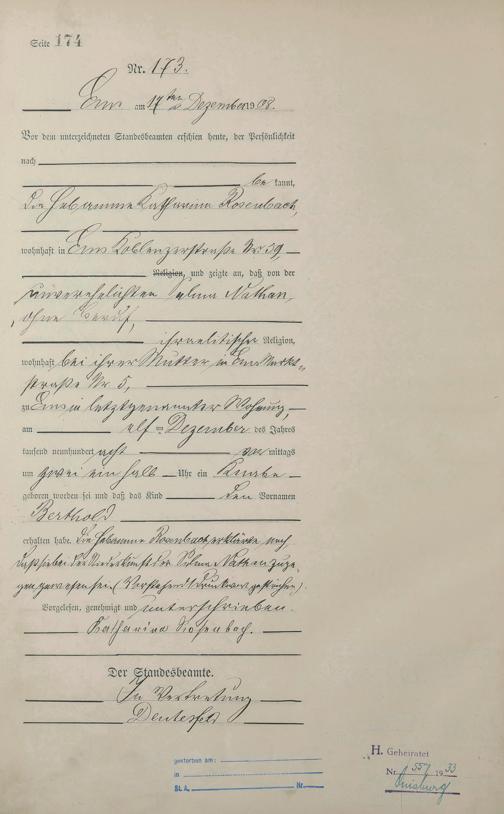 Seite 174
Nr. 173.
Ems am 17ten Dezember 1908.
Vor dem unterzeichneten Standesbeamten erschien heute, der Persönlichkeit
nach
be kannt,
die Hebamme Katharina Rosenbach,
wohnhaft in Ems Koblenzerstraße Nr 39,
Religion, und zeigte an, daß von der
unverehelichten Selma Nathan,
ohne Beruf,
israelitischer Religion,
wohnhaft bei ihrer Mutter in Ems Markt-
straße Nr. 5,
zu Ems in letztgenannter Wohnung,
am elf= Dezember des Jahres
tausend neunhundert acht vor mittags
um zwei ein halb Uhr ein Knabe
geboren worden sei und daß das Kind den Vornamen
Berthold
erhalten habe. Die Hebamme Rosenbach erklärte noch,
daß sie bei der Niederkunft der Selma Nathan zuge
gen gewesen sei. (Vorstehend 1 Druckwort gestrichen).
Vorgelesen, genehmigt und unterschrieben.
Katharina Rosenbach.
Der Standesbeamte.
In Vertretung
gestorben am:
in
St. A. Nr.
H. Geheiratet
Nr. 557 1933
Duisburg